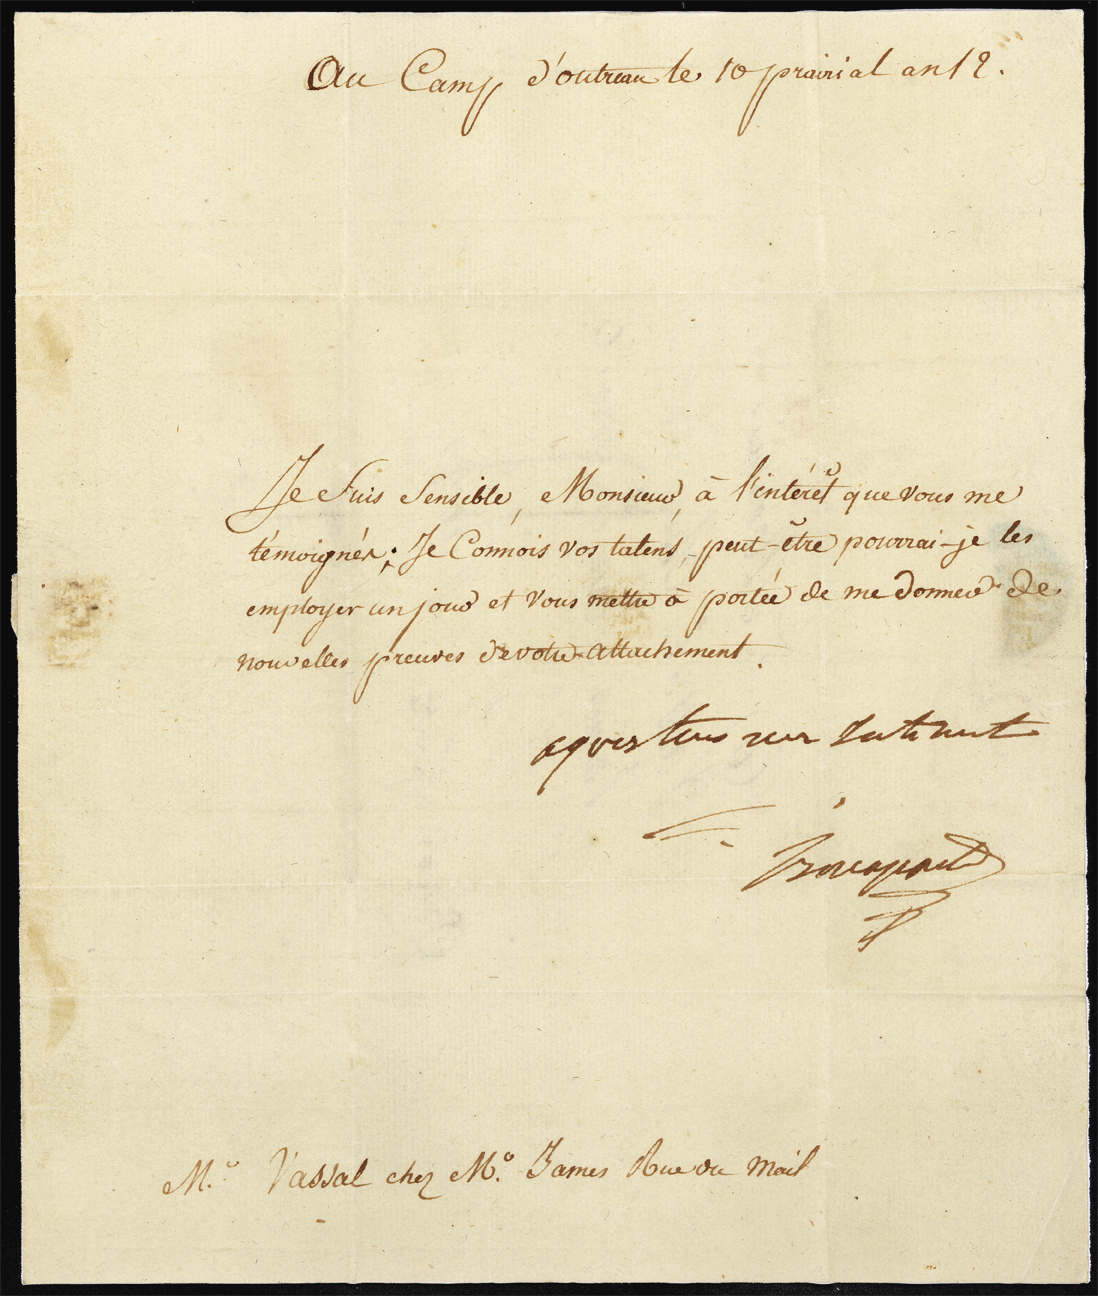 Au Camp d'outreau le 10 prairial an 12.
Je Suis Sensible, Monsieur, à l'intérêt que vous me
témoignés; Je Connois vos talens, peut-être pourrai-je les
employer un jour et vous mettre à portée de me donner de
nouvelles preuves de votre attachement.
Bonaparte
M.r Vassal chez M.r James Rue du Mail